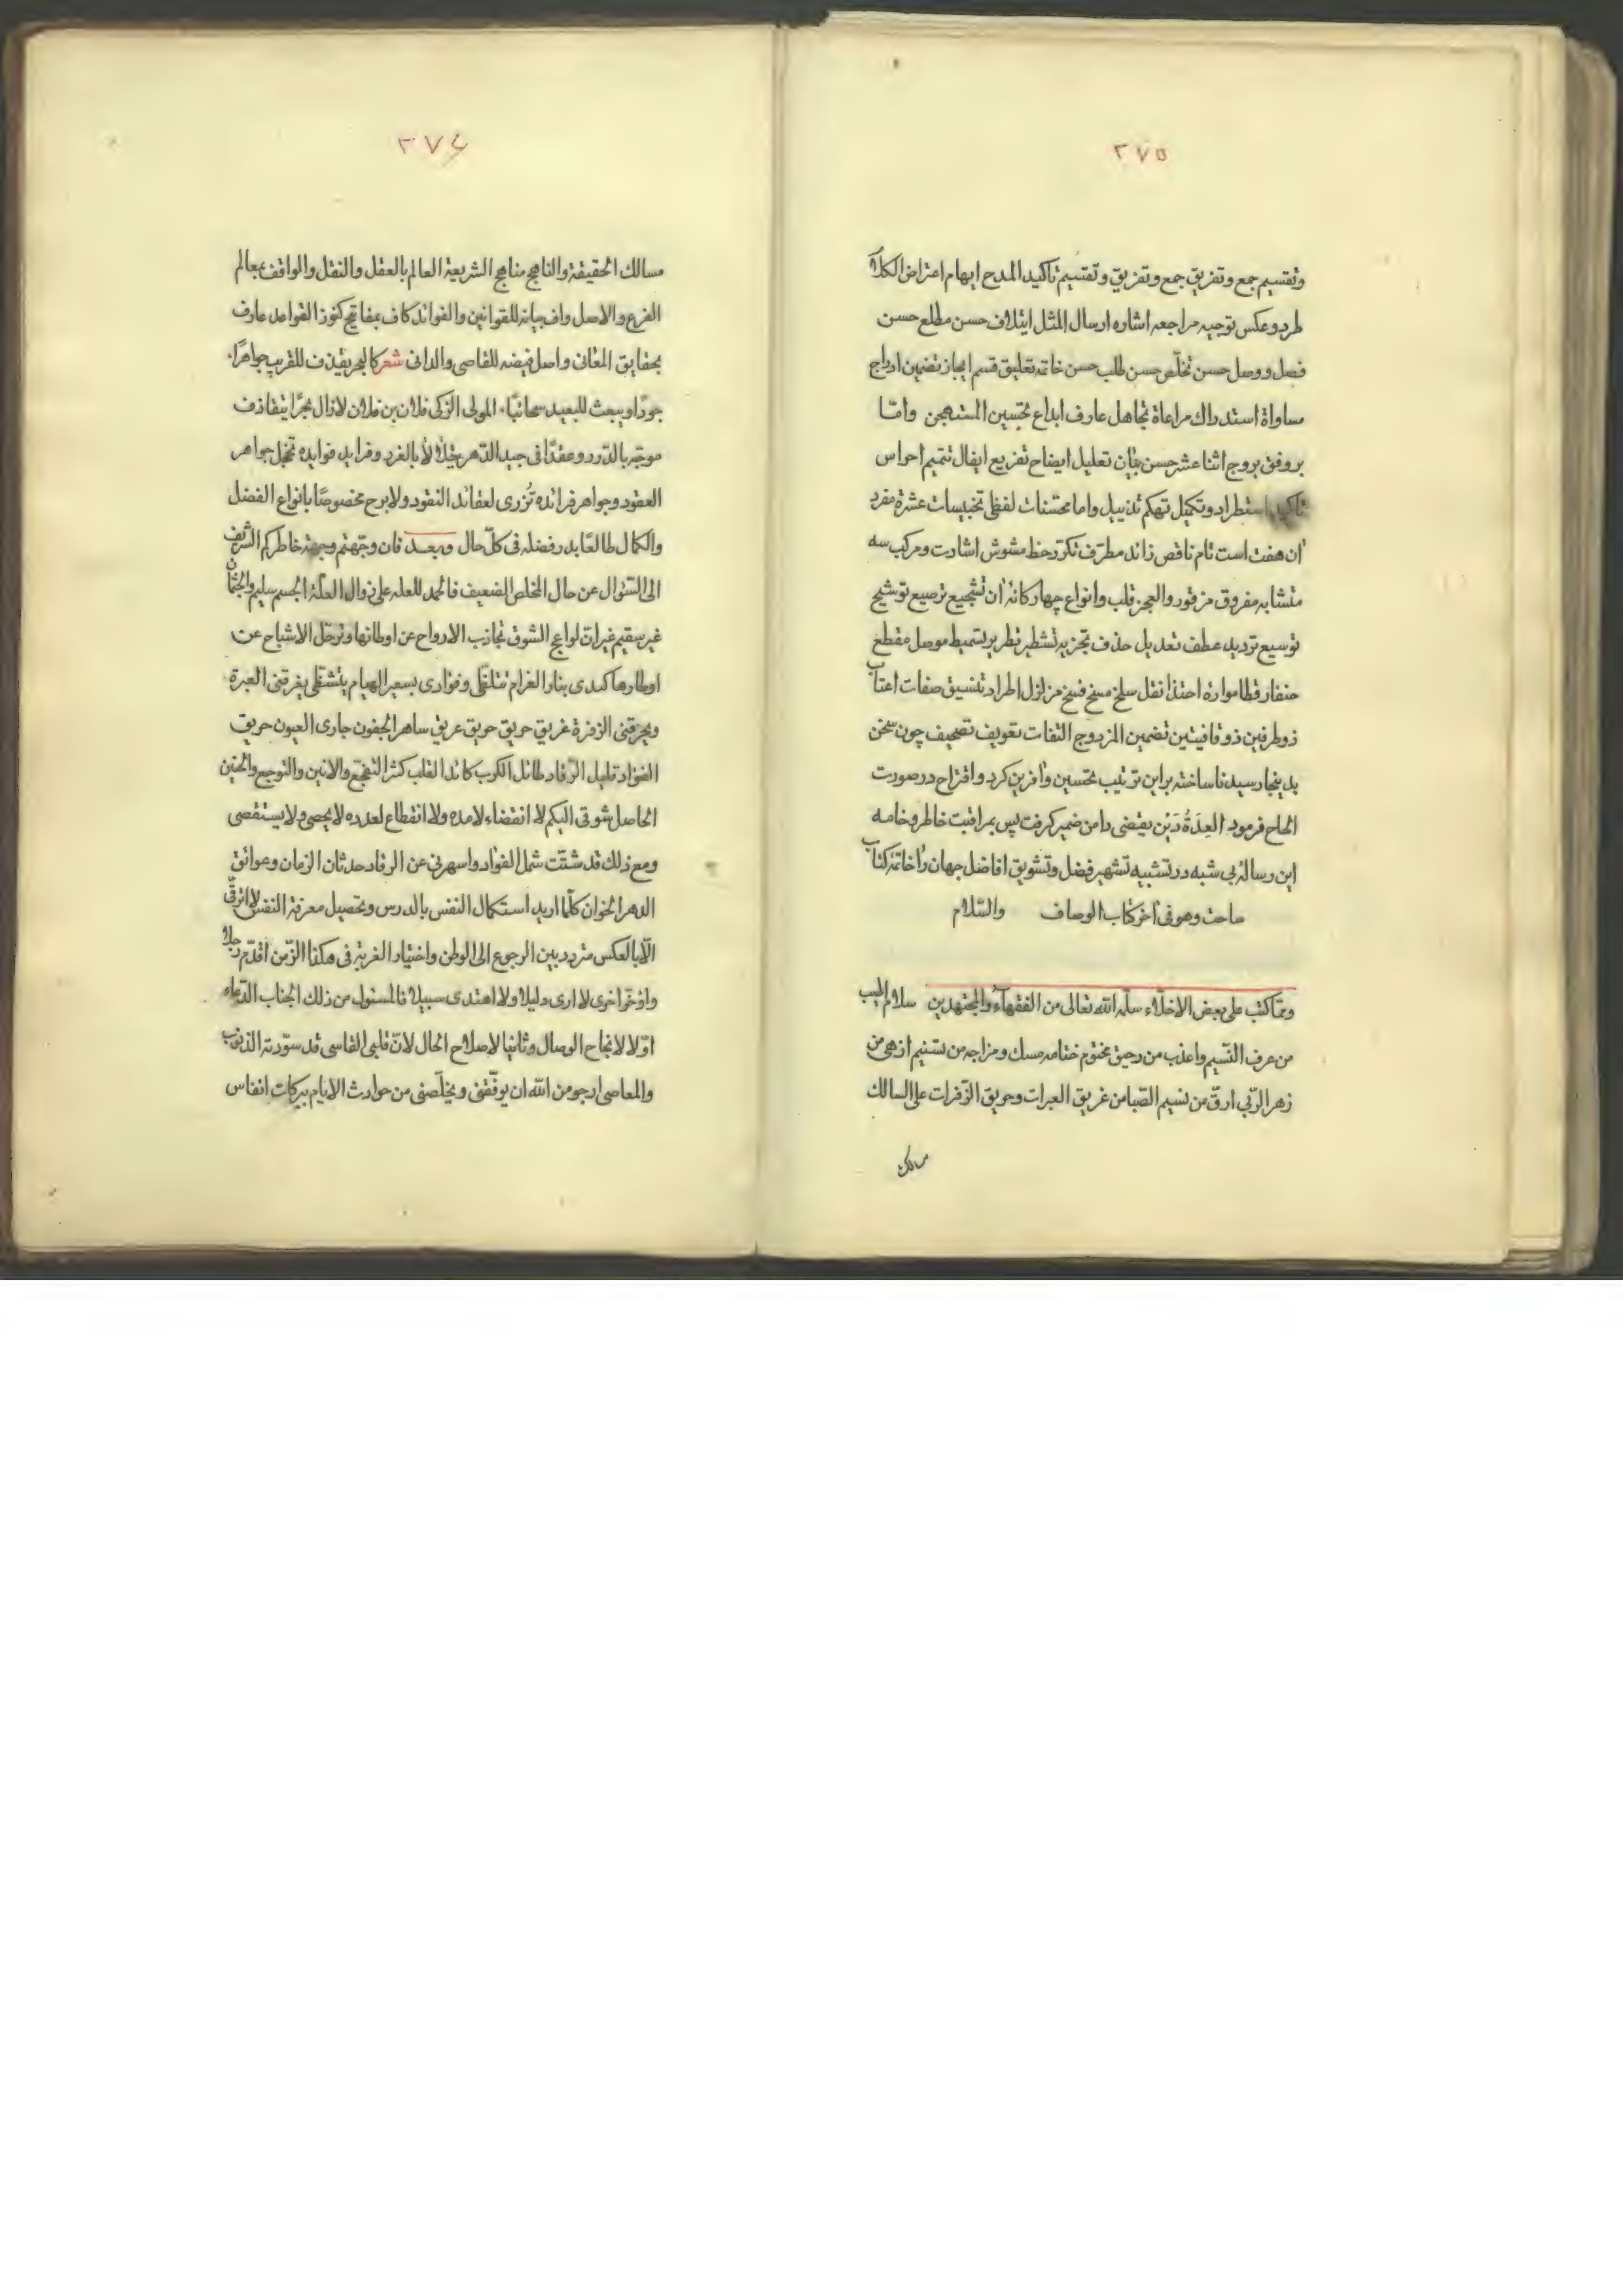 ٢٧٥
وتقسيم جمع وتفريق جمع وتفريق وتقسيم تاكيد المدح ايهام اعتراض الكلام
طرد وعكس توجيه مراجعه اشاره ارسال المثل ايتلاف حسن مطلع حسن
فصل ووصل حسن تخلّص حسن طلب حسن خاتمه تعليق قسم ايجاز تضمين ادماج
مساواة استدراك مراعاة تجاهل عارف ابداع تحسين المستهجن وامّا
بر وفق بروج اثنا عشر حسن بيان تعليل ايضاح تفريع ايغال تتميم احراس
تاكيد استطراد وتكميل تهكم تذييل واما محسّنات لفظى تجنيسات عشرة مفرد
آن هفت است تام ناقص زائد مطرّف مكرّر خط مشوش اشارت ومركب سه
متشابه مفروق مرفو ردالعجز قلب وانواع چهاركانهٔ آن تسجيع ترصيع توشيح
توسيع ترديد عطف تعديل حذف تجزيه تشطير تطريز تسميط موصل مقطع
خيفا رقطا مواره احتذا نقل سلخ مسخ فسخ متزلزل اطراد تنسيق صفات اعتاب
ذوطرفين ذوقافيتين تضمين المزدوج التفات تعويف تصحيف چون سخن
بدينجا رسيد ناساخته براين ترتيب تحسين وآفرين كرد و اقتراح درصورت
الحاح فرمود العِدَةُ دَيْن بقضى دامن ضمير كرفت پس بمراقبت خاطر وخامه
اين رسالهٔ بى شبه در تشبيه تشهير فضل وتشويق افاضل جهان را خاتمهٔ كتاب
ساخت وهو فى آخر كتاب الوصاف والسّلام
وممّا كتب على بعض الاخلّاء سلّمه الله تعالى من الفقهاء والمجتهدين سلام اطيب
من عرف النّسيم واعذب من رحيق مختوم ختامه مسك ومزاجه من تسنيم ازهى من
زهر الرّبى ارقّ من نسيم الصّبا من غريق العبرات وحريق الزّفرات على السالك
مسالك
٢٧٤
مسالك الحقيقة والناهج مناهج الشريعة العالم بالعقل والنقل والواقف بمعالم
الفرع والاصل واف بيانه للقوانين والفوائد كاف بمفاتيح كنوز القواعد عارف
بحقايق المعانى واصل فيضه للقاصى والدانى شعر كالبحر يقذف للقريب جواهرًا
جودًا ويبعث للبعيد سحائبًا المولى الزكى فلان بن فلان لازال بحرًا يتقاذف
موجه بالدّرر وعقدًا فى جيد الدّهر يتلألأ بالغرر وفرايد فوايده تخجل جواهر
العقود وجواهر فرائده تُزرى لعقائد النقود ولابرح مخصوصًا بانواع الفضل
والكمال طالعًا بدر فضله فى كلّ حال وبعـد فان وجّهتم وجهة خاطركم الشريف
الى السّئوال عن حال المخلص الضعيف فالحمد لله على زوال العلّة الجسم سليم والجنان
غير سقيم غير انّ لواعج الشوق تجاذب الارواح عن اوطانها وترحل الاشباح عن
اوطارها كبدى بنار الغرام تتلظّى وفؤادى بسعير الهيام يتشظّى يغرقنى العبرة
ويحرقنى الزفرة غريق حريق حريق غريق ساهر الجفون جارى العيون حريق
الفؤاد قليل الرّقاد طائل الكرب كائد القلب كثير التفجّع والانين والتوجع والحنين
الحاصل شوقى اليكم لا انقضاء لامده ولا انقطاع لعدده لا يحصى ولا يستقصى
ومع ذلك قد شتّت شمل الفؤاد واسهرنى عن الرقاد حدثان الزمان وعوائق
الدهر الخوان كلّما اريد استكمال النفس بالدرس وتحصيل معرفة النفس لا اترقّى
الّا بالعكس متردد بين الرجوع الى الوطن واختيار الغربة فى هكذا الزّمن اقدّم رجلا
واؤخّر اخرى لا ارى دليلا ولا اهتدى سبيلا فالمسئول من ذلك الجناب الدّعاء
اوّلا لانجاح الوصال وثانيا لاصلاح الحال لانّ قلبى القاسى قد سوّدته الذنوب
والمعاصى ارجو من الله ان يوفّقنى ويخلّصنى من حوادث الايام ببركات انفاس